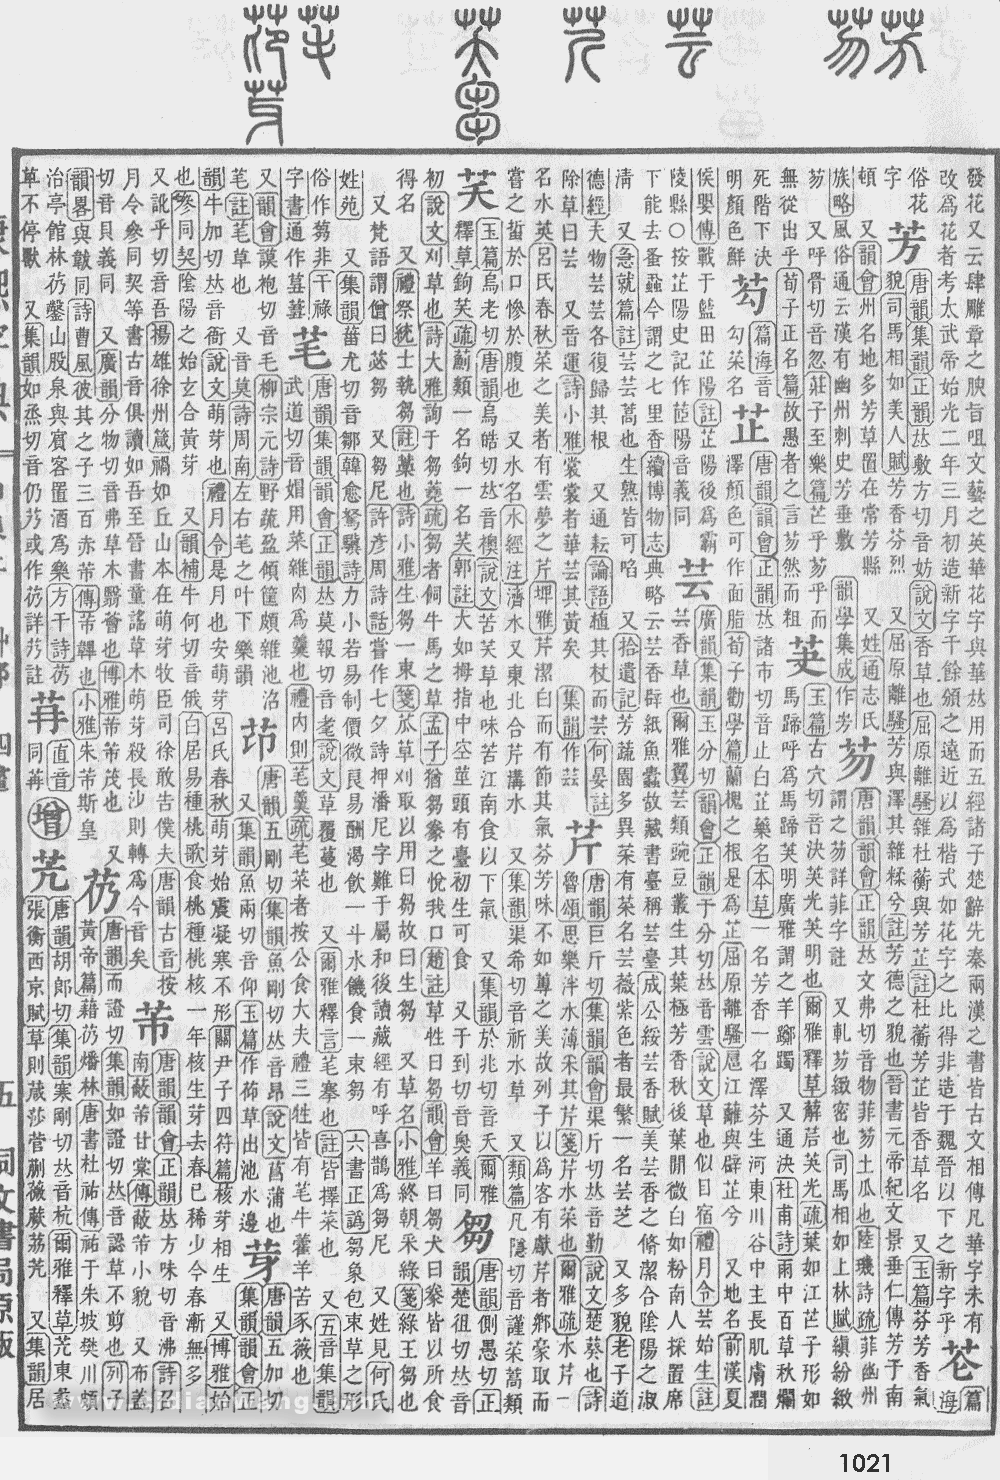 發花又云肆雕章之腴旨咀文藝之英華花字與華𠀤用而五經諸子楚辭先秦兩漢之書皆古文相傳凡華字未有
改爲花者考太武帝始光二年三月初造新字千餘頒之遠近以爲楷式如花字之比得非造于魏晉以下之新字乎
芲
篇海
俗花
字
芳
唐韻集韻正韻𠀤敷方切音妨說文香草也屈原離騷雜杜蘅與芳芷註杜蘅芳芷皆香草名 又玉篇芬芳香氣
貌司馬相如美人賦芳香芬烈 又屈原離騷芳與澤其雜糅兮註芳德之貌也晉書元帝紀文景垂仁傳芳于南
頓 又韻會州名地多芳草置在常芳縣 又姓通志氏
族略風俗通云漢有幽州刺史芳垂敷 韻學集成作
芴
唐韻韻會正韻𠀤文弗切音物菲芴土瓜也陸璣詩疏菲幽州
謂之芴詳菲字註 又軋芴緻密也司馬相如上林賦縝紛緻
芴 又呼骨切音忽莊子至樂篇芒乎芴乎而
無從出乎荀子正名篇故愚者之言芴然而粗
芵
玉篇古穴切音決芵光芵明也爾雅釋草薢茩芵光疏葉如江芒子形如
馬蹄呼爲馬蹄芵明廣雅謂之羊躑躅 又通決杜甫詩雨中百草秋爛
死階下決
明顏色鮮
芶
篇海音
勾菜名
芷
唐韻韻會正韻𠀤諸市切音止白芷藥名本草一名芳香一名澤芬生河東川谷中主長肌膚潤
澤顏色可作面脂荀子勸學篇蘭槐之根是爲芷屈原離騷扈江蘺與辟芷兮 又地名前漢夏
侯嬰傳戰于藍田芷陽註芷陽後爲霸
陵縣○按芷陽史記作茝陽音義同
芸
廣韻集韻玉分切韻會正韻于分切𠀤音雲說文草也似目宿禮月令芸始生註
芸香草也爾雅翼芸類豌豆叢生其葉極芳香秋後葉閒微白如粉南人採置席
下能去蚤蝨今謂之七里香續博物志典略云芸香辟紙魚蠹故藏書臺稱芸臺成公綏芸香賦美芸香之脩潔合陰陽之淑
淸 又急就篇註芸芸蒿也生熟皆可啗 又拾遺記芳蔬園多異菜有菜名芸薇紫色者最繁一名芸芝 又多貌老子道
德經夫物芸芸各復歸其根 又通耘論語植其杖而芸何晏註
除草曰芸 又音運詩小雅裳裳者華芸其黃矣 集韻作䒳
芹
唐韻巨斤切集韻韻會渠斤切𠀤音勤說文楚葵也詩
魯頌思樂泮水薄采其芹箋芹水菜也爾雅疏水芹一
名水英呂氏春秋菜之美者有雲夢之芹埤雅芹潔白而有節其氣芬芳味不如蓴之美故列子以爲客有獻芹者鄕豪取而
嘗之蜇於口慘於腹也 又水名水經注濟水又東北合芹溝水 又集韻渠希切音祈水草 又類篇凡隱切音謹菜蒿類
芺
玉篇烏老切唐韻烏皓切𠀤音襖說文苦芺草也味苦江南食以下氣 又集韻於兆切音夭爾雅
釋草鉤芺疏薊類一名鉤一名芺郭註大如拇指中空莖頭有臺初生可食 又于到切音奧義同
芻
唐韻側愚切正
韻楚徂切𠀤音
初說文刈草也詩大雅詢于芻蕘疏芻者飼牛馬之草孟子猶芻豢之悅我口趙註草牲曰芻韻會羊曰芻犬曰豢皆以所食
得名 又禮祭統士執芻註藁也詩小雅生芻一束箋苽草刈取以用曰芻故曰生芻 又草名小雅終朝采綠箋綠王芻也
又梵語謂僧曰苾芻 又芻尼許彥周詩話嘗作七夕詩押潘尼字難于屬和後讀藏經有呼喜鵲爲芻尼 又姓見何氏
姓苑 又集韻葘尤切音鄒韓愈駑驥詩力小若易制價微良易酬渴飲一斗水饑食一束芻 六書正譌芻象包束草之形
俗作蒭非干祿
字書通作蒭
芼
唐韻集韻韻會正韻𠀤莫報切音老說文草覆蔓也 又爾雅釋言芼搴也註皆擇菜也 又五音集韻
武道切音媢用菜雜肉爲羹也禮內則芼羹疏芼菜者按公食大夫禮三牲皆有芼牛藿羊苦豕薇也
又韻會謨袍切音毛柳宗元詩野蔬盈傾筐頗雜池沼
芼註芼草也 又音莫詩周南左右芼之叶下樂韻
茚
唐韻五剛切集韻魚剛切𠀤音昂說文菖蒲也
又集韻魚兩切音仰玉篇作䒢草出池水邊
芽
唐韻五加切
集韻韻會正
韻牛加切𠀤音衙說文萌芽也禮月令是月也安萌芽呂氏春秋萌芽始震凝寒不形關尹子四符篇核芽相生 又博雅始
也參同契陰陽之始玄合黃芽 又韻補牛何切音俄白居易種桃歌食桃種桃核一年核生芽去春已稀少今春漸無多
又訛乎切音吾揚雄徐州箴禍如丘山本在萌芽牧臣司徐敢吿僕夫
月令參同契等書古音俱讀如吾至晉書童謠草木萌芽殺長沙則轉爲今音矣
芾
唐韻韻會正韻𠀤方味切音沸詩召
南蔽芾甘棠傳蔽芾小貌 又布蓋
切音貝義同 又廣韻分物切音弗草木翳薈也博雅芾芾茂也
韻畧與韍同詩曹風彼其之子三百赤芾傳芾韠也小雅朱芾斯皇
芿
唐韻而證切集韻如證切𠀤音認草不剪也列子
黃帝篇藉芿燔林唐書杜祐傳祐于朱坡樊川頗
治亭館林芿鑿山股泉與賓客置酒爲樂方干詩芿
草不停獸 又集韻如烝切音仍芿或作䒮詳艿註
苒
直音
同苒
增
芫
唐韻胡郎切集韻寒剛切𠀤音杭爾雅釋草芫東蠡
張衡西京賦草則葴莎菅蒯薇蕨荔芫 又集韻居
1021